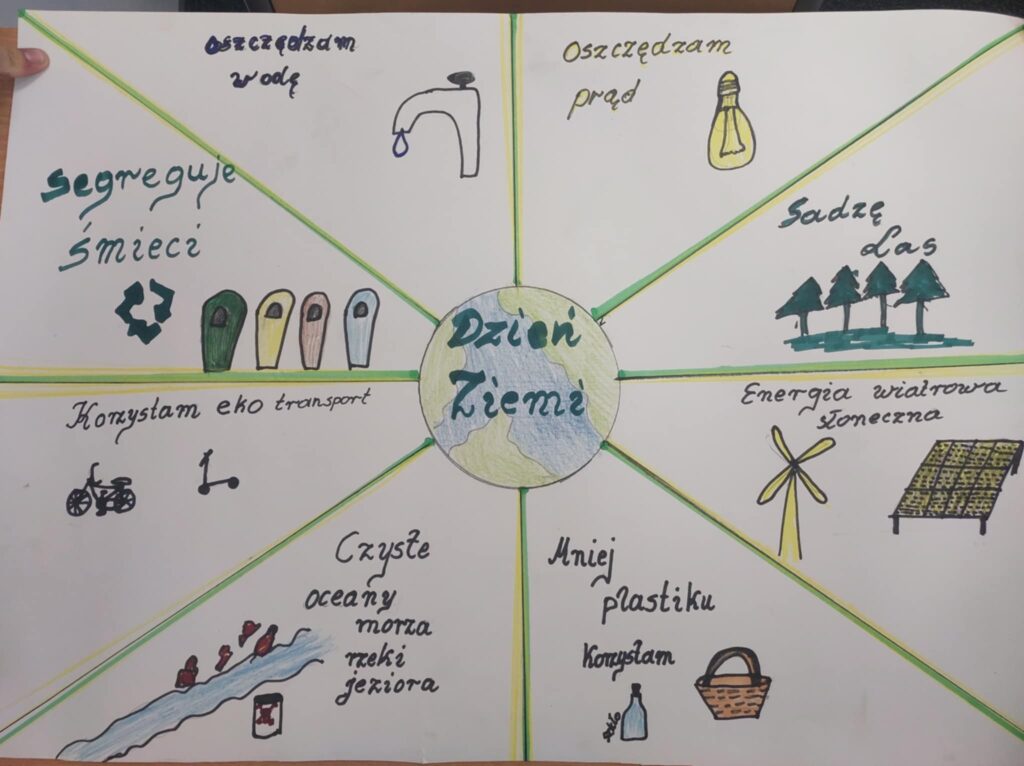 Oszczędzam
wodę
Oszczędzam
prąd
Segreguje
śmieci
Sadzę
Las
Dzień
Ziemi
Korzystam eko transport
Energia wiatrowa
słoneczna
Czyste
oceany
morza
rzeki
jeziora
Mniej
plastiku
Korzystam